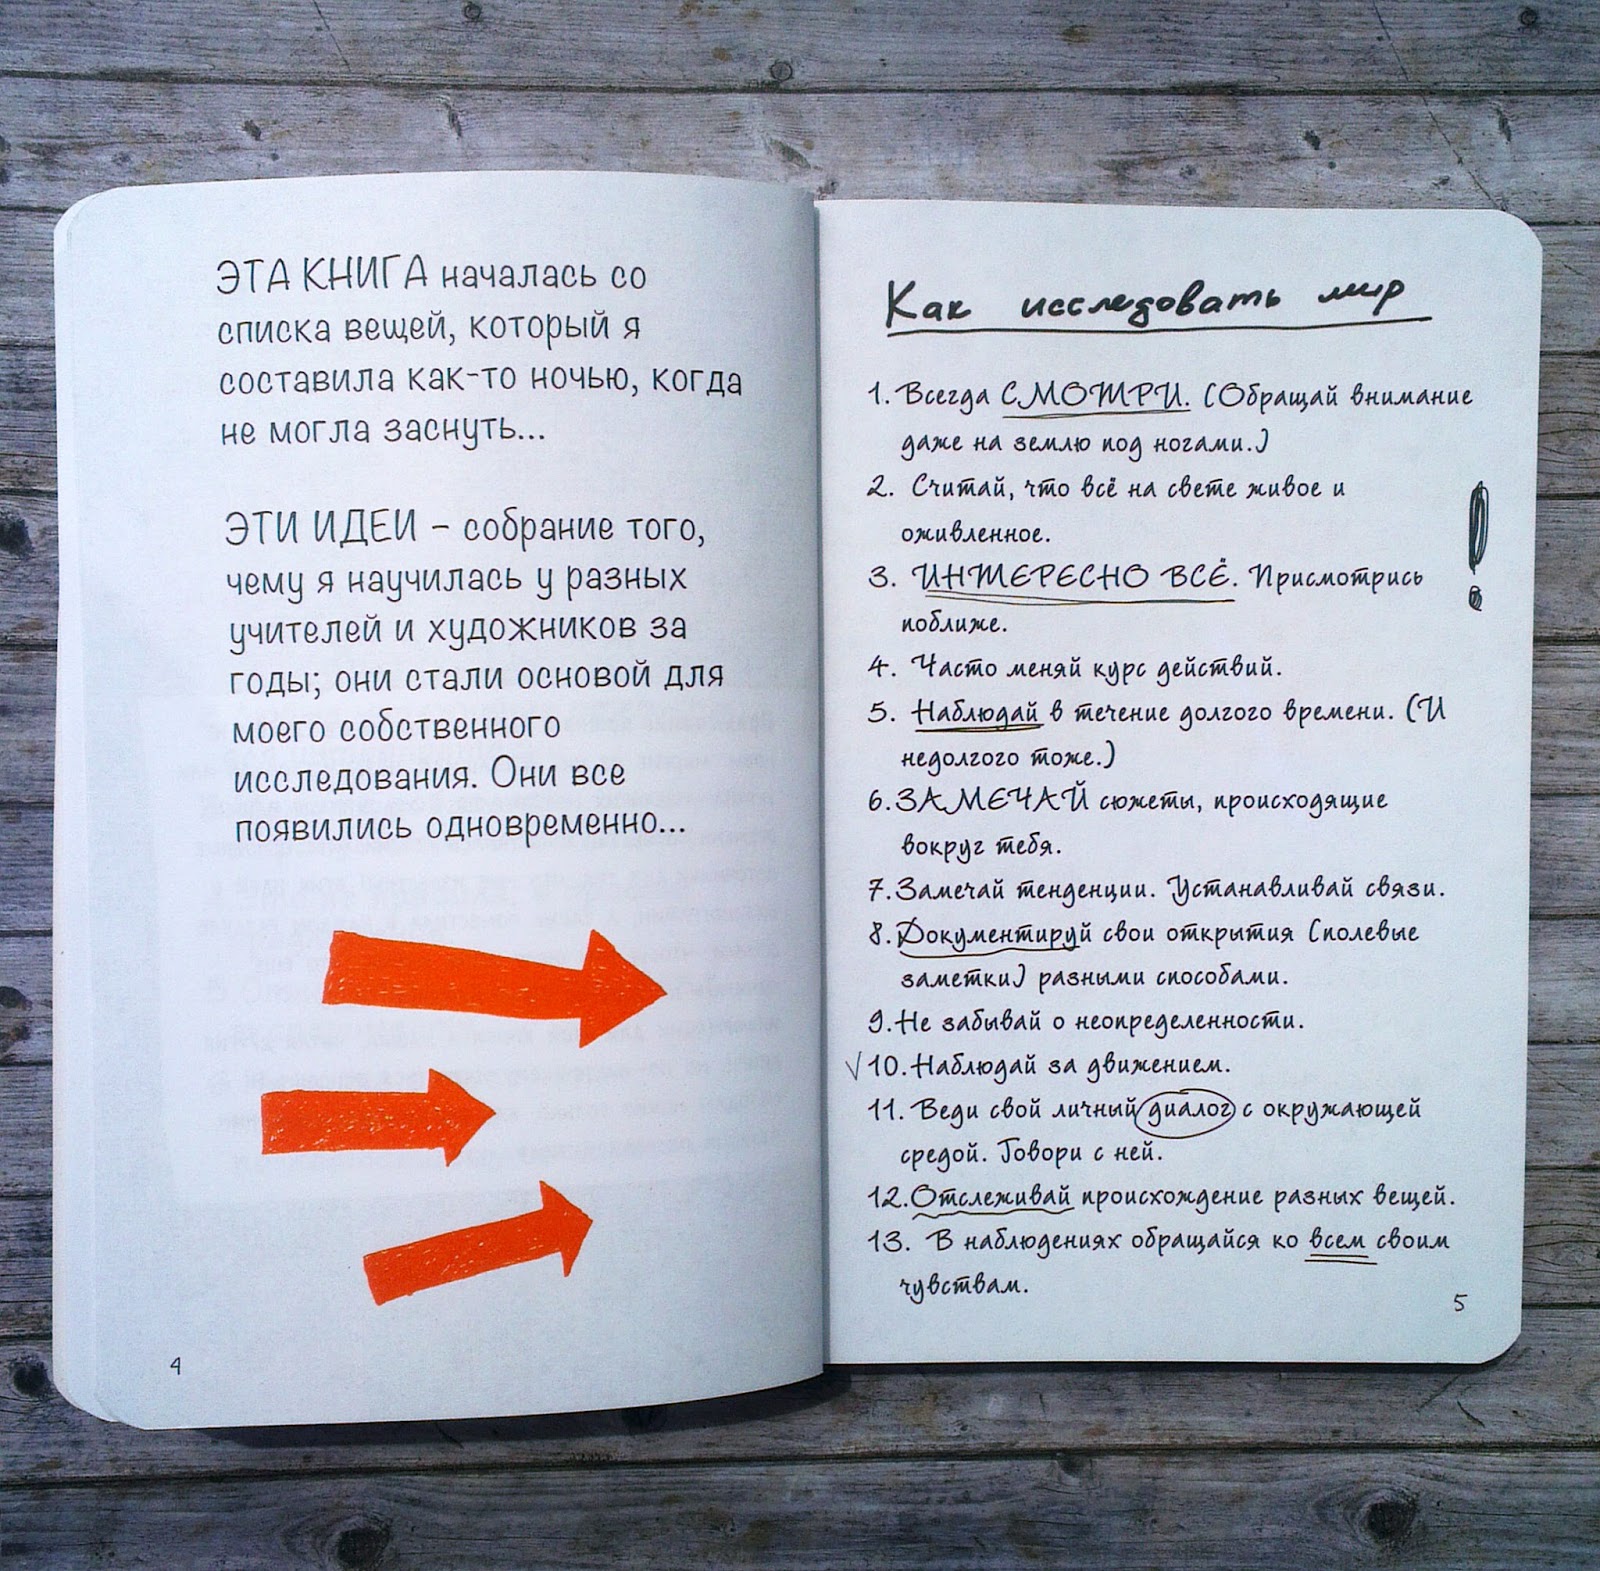 ЭТА КНИГА началась со
списка вещей, который я
составила как-то ночью, когда
не могла заснуть...
ЭТИ ИДЕИ – собрание того,
чему я научилась у разных
учителей и художников за
годы; они стали основой для
моего собственного
исследования. Они все
появились одновременно...
4
Как исследовать мир
1. Всегда СМОТРИ. (Обращай внимание
даже на землю под ногами.)
2. Считай, что всё на свете живое и
оживленное.
3. ИНТЕРЕСНО ВСЁ. Присмотрись
поближе.
4. Часто меняй курс действий.
5. Наблюдай в течение долгого времени. (И
недолгого тоже.)
6. ЗАМЕЧАЙ сюжеты, происходящие
вокруг тебя.
7. Замечай тенденции. Устанавливай связи.
8. Документируй свои открытия (полевые
заметки) разными способами.
9. Не забывай о неопределенности.
√ 10. Наблюдай за движением.
11. Веди свой личный диалог с окружающей
средой. Говори с ней.
12. Отслеживай происхождение разных вещей.
13. В наблюдениях обращайся ко всем своим
чувствам.
!
5